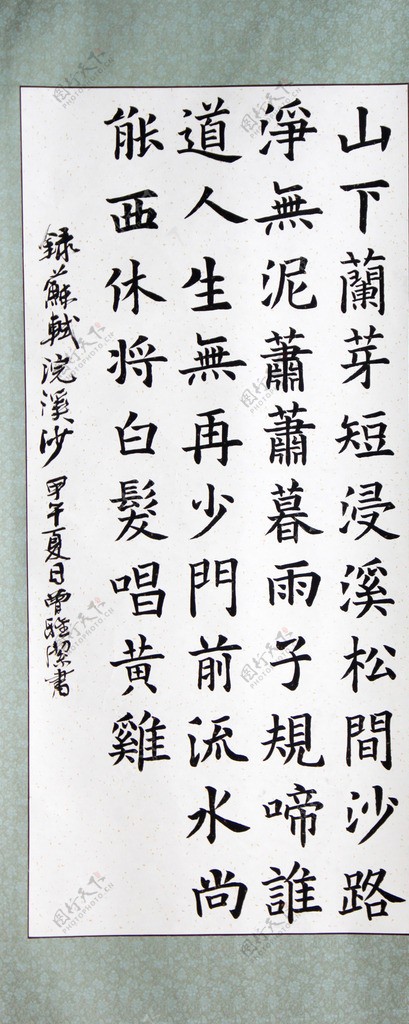 山下蘭芽短浸溪松間沙路
淨無泥蕭蕭暮雨子規啼誰
道人生無再少門前流水尚
能西休将白髮唱黃雞
録蘇軾浣溪沙 甲午夏日曾潔書
图行天下 PHOTOPHOTO.CN